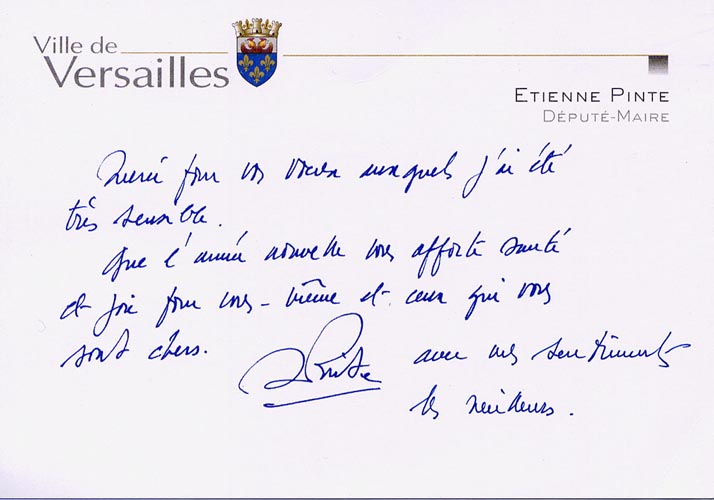 Ville de
Versailles
ETIENNE PINTE
DÉPUTÉ-MAIRE
Merci pour vos voeux auxquels j'ai été
très sensible.
Que l'année nouvelle vous apporte santé
et joie pour vous-même et ceux qui vous
sont chers.
EPinte
avec mes sentiments
les meilleurs.